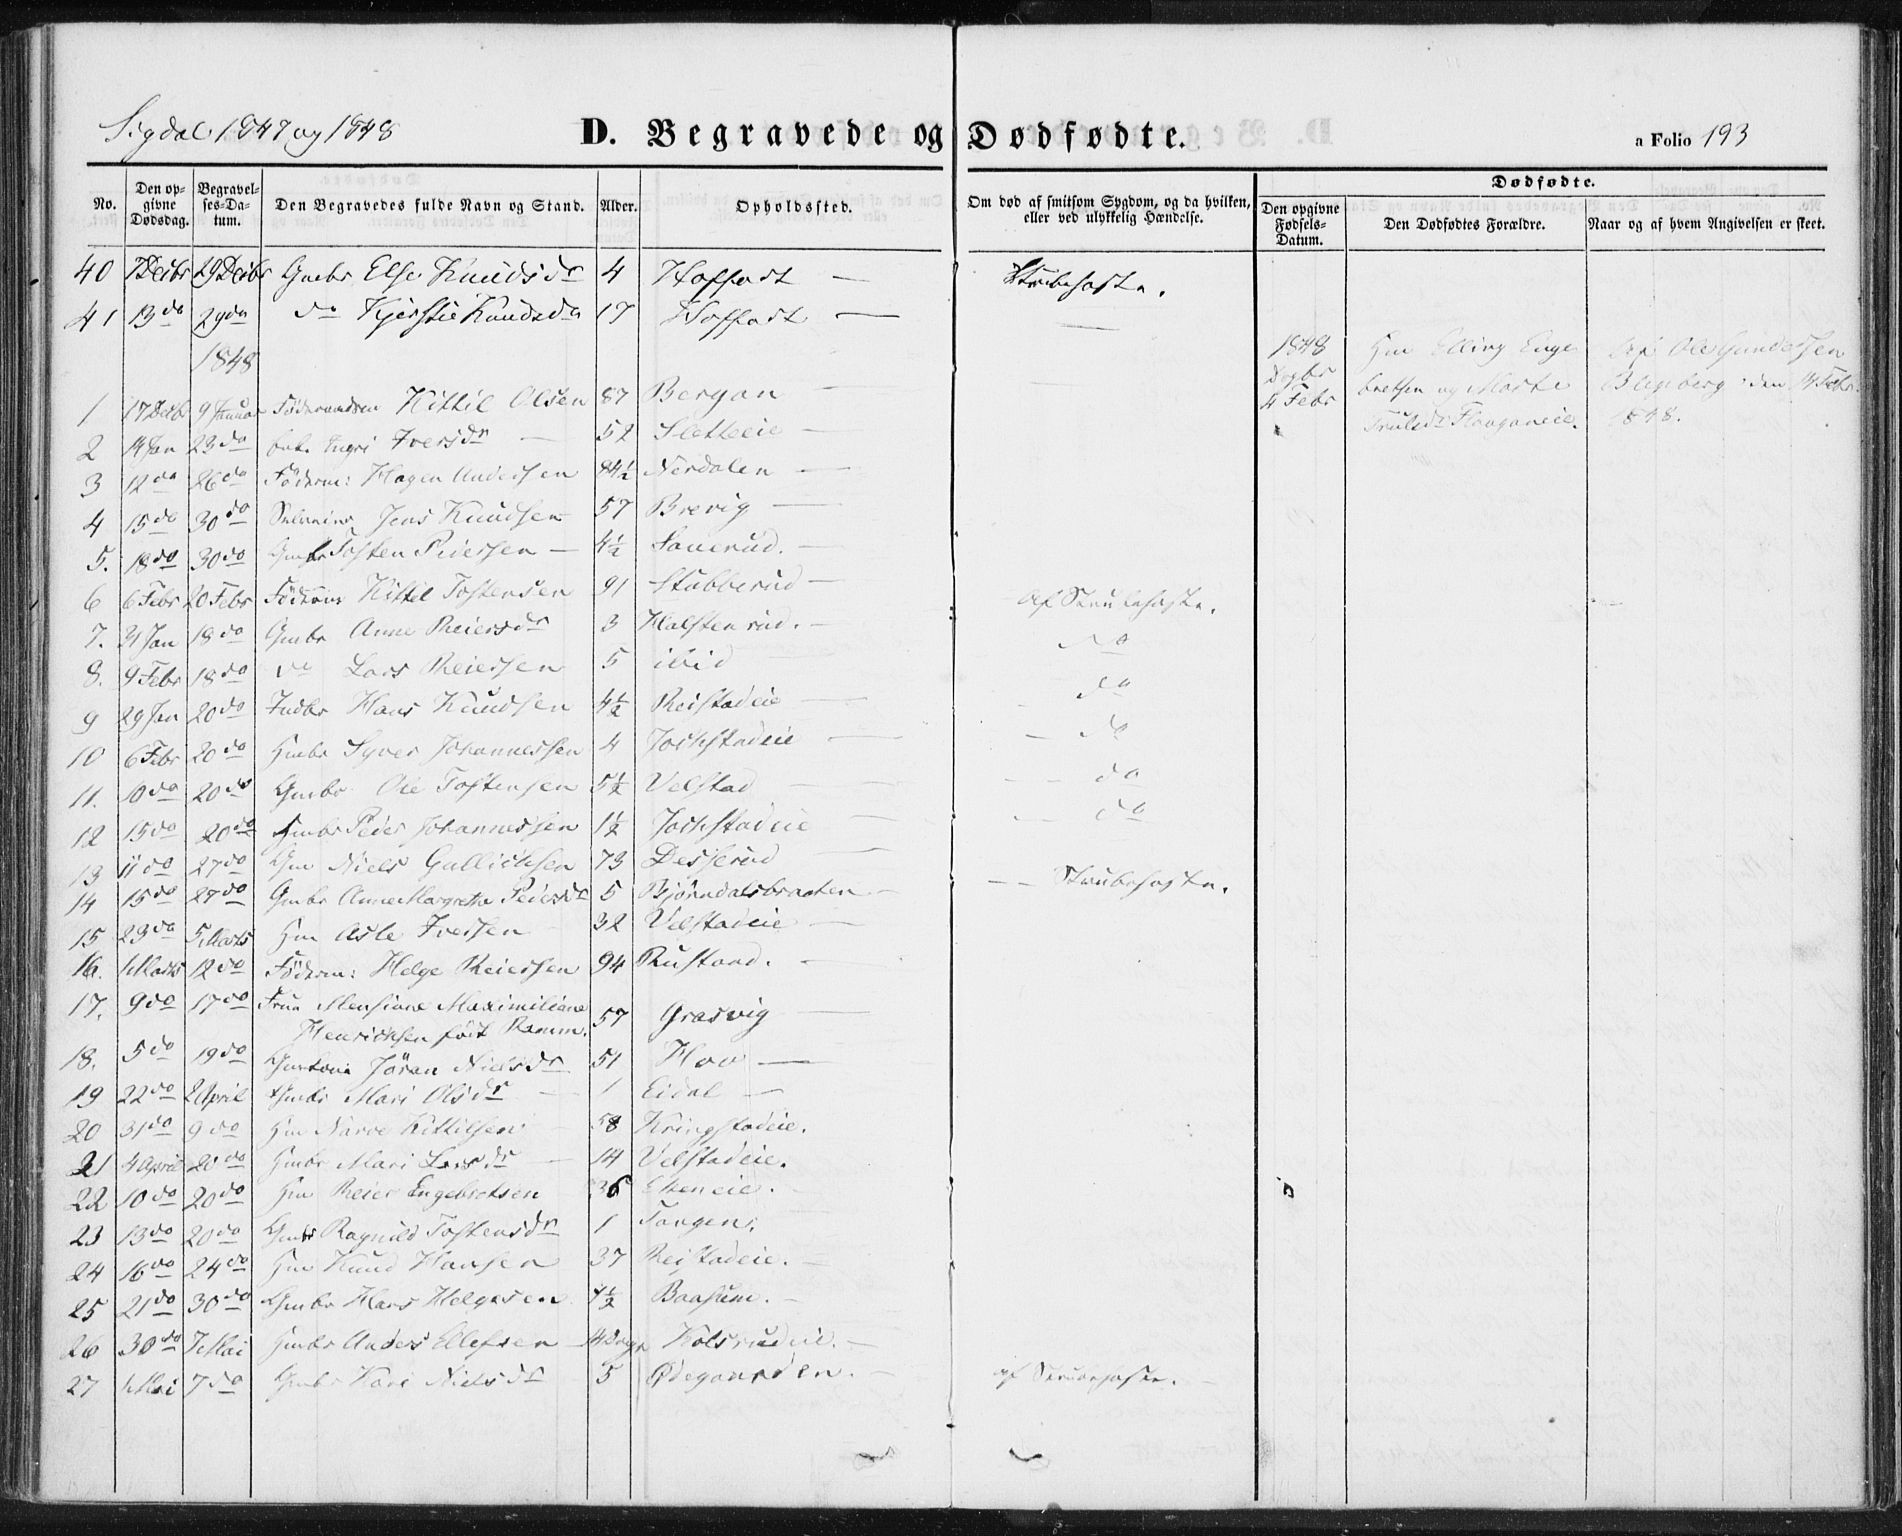 Sigdal 1847 og 1848
D. Begravede og Dødfødte.
a Folio 193
No.
Den opgivne Dødsdag.
Begravelses-Datum.
Den Begravedes fulde Navn og Stand.
Alder.
Opholdssted.
Om død af smitsom Sygdom, og da hvilken, eller ved ulykkelig Hændelse.
Dødfødte.
Den opgivne Fødsels-Datum.
Den Dødfødtes Forældre.
Naar og af hvem Angivelsen er skeet.
40 7 Decbr 29 Decbr Gmbr Else Knudsdr 4 Hoffart — Strubehoste.
41 13 do 29 do do Kjerstie Knudsdr 17 Hoffart —
1848
1 17 Decbr 9 Januar Föderaadsm Kittil Olsen 87 Bergan —
1848 4 Febr
Hm Elling Engebretsen og Marte Trulsdr Hauganeie.
Af Ole Gundersen den 14 Febr 1848.
2 14 Jan 23 do Ingri Iversdr — 52 Sletteeie —
3 12 do 26 do Föderm: Hagen Andersen 84½ Nerdalen —
4 15 do 30 do Jens Knudsen 57 Brevig —
5. 18 do 30 do Gmbr Tosten Pedersen — 4½ —
6 6 Febr 20 Febr Kittel Tostensen 91 Stubberud — Af Strubehoste.
7. 31 Jan 18 do Gmbr Anne Reiersdr 3 Halstenrud. — do
8. 9 Febr 18 do do Lars Reiersen 5 ibid — do
9 29 Jan 20 do Indbr Hans Knudsen 4½ Reistadeie — do
10 6 Febr 20 do Hmbr Syver Johannessen 4 Jockstadeie — do
11. 10 do 20 do Gmbr Ole Tostensen 5½ Velstad — do
12 15 do 20 do Hmbr Peder Johannessen 1½ Jockstadeie
13 11 do 27 do Gm Niels Gullichsen 73 Desserud
14 15 do 27 do Gmbr Anne Margrethe Pedersdr 5 Bjørndalsbraaten — Strubehoste.
15 23 do 5 Marts Hm Asle Iversen 32 Velstadeie —
16. 1 Marts 12 do Föderm: Helge Reiersen 94 Rustand. —
17. 9 do 17 do Frue Mensione Maximiliane Henrichsen født Ramm. 57 Græsvig —
18. 5 do 19 do Gmkone Jöran Nielsdr 51 Hov —
19 22 do 2 April Gmbr Mari Olsdr — 1 Eidal —
20 31 do 9 do Hm Narve Kittilsen 58 Kringstadeie.
21 4 April 20 do Hmbr Mari Larsdr — 14 Velstadeie.
22 10 do 20 do Hm Reier Engebretsen 36 Ekeneie. —
23 13 do 20 do Gmbr Ragnild Tostensdr 1 Tangen.
24 16 do 24 do Hm Knud Hansen 37 Reistadeie. —
25 21 do 30 do Gmbr Hans Helgesen 4½ Baasum. —
26 30 do 7 Mai Hmbr Anders Ellefsen 14 Dage Kolsrudeie. —
27 1 Mai 7 do Gmbr Kari Nielsdr 5 Ødegaarden. — af Strubehoste.